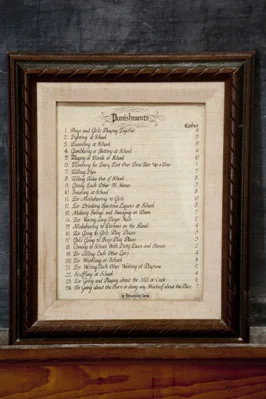 Punishments
Lashes
1. Boys and Girls Playing Together 4
2. Fighting at School 5
3. Quareling at School 5
4. Gambling or Betting at School 4
5. Playing at Cards at School 10
6. Climbing for Every Foot Over Three Feet Up a Tree 1
7. Telling Lyes 7
8. Telling Tales Out of School 8
9. Giving Each Other Ill Names 3
10. Swaring at School 8
11. For Misbehaving to Girls 10
12. For Drinking Spiritous Liquors at School 8
13. Making Swings and Swinging on Them 7
14. For Waring Long Finger Nails 2
15. Misbehaving to Persons on the Road 4
16. For Going to Girls Play Places 3
17. Girls Going to Boys Play Places 3
18. Coming to School With Dirty Faces and Hands 2
19. For Calling Each Other Liars 4
20. For Wrestling at School 4
21. For Weting Each Other Washing at Playtime 2
22. Scuffling at School 4
23. For Going and Playing about the Mill or Creek 6
24. For Going about the Barn or doing any Mischief about the Place 7